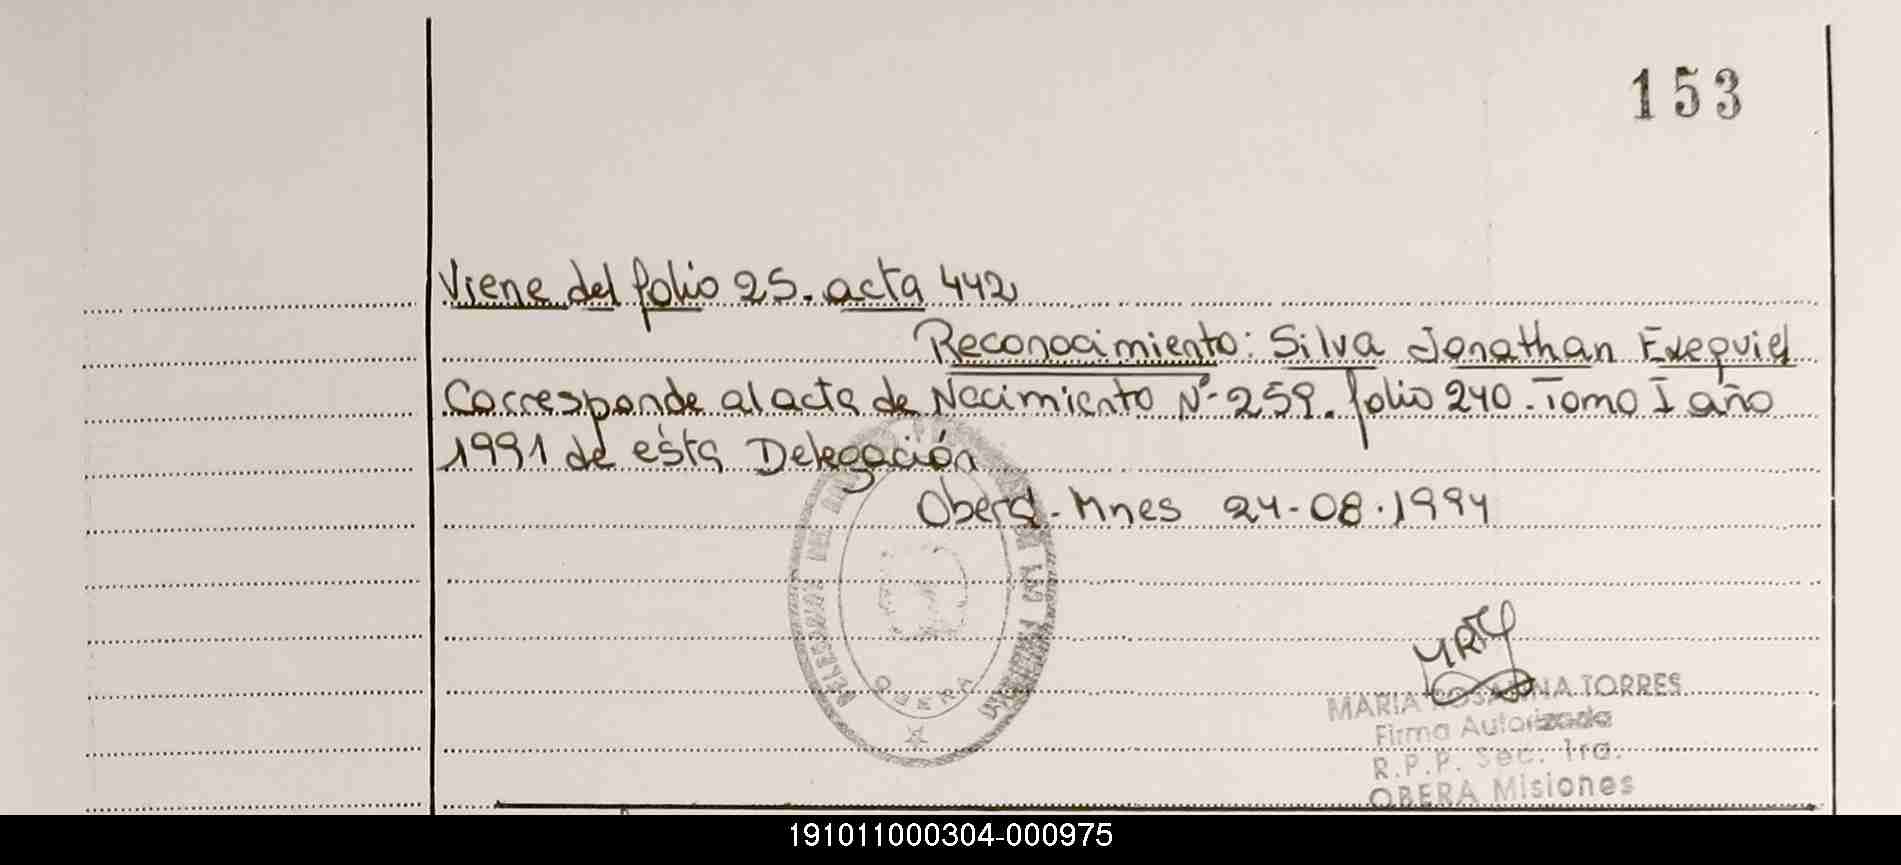 153
Viene del folio 25. acta 442
Reconocimiento: Silva Jonathan Exequiel
Corresponde al acta de Nacimiento Nº 259. folio 240. Tomo I año
1991 de ésta Delegación
Oberá - Mnes 24-08.1994
OBERA
MARIA TORRES
Firma Autorizada
R.P.P. Sec. 1ra.
OBERA Misiones
191011000304-000975